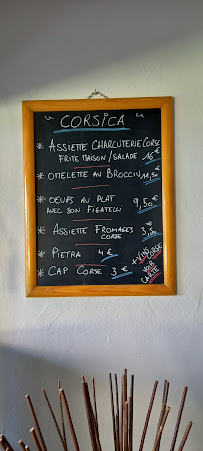 " CORSICA "
* ASSIETTE CHARCUTERIE CORSE
FRITE MAISON / SALADE 16 €
* OMELETTE AU BROCCIU 11,50 €
* OEUFS AU PLAT
AVEC SON FIGATELLI 9,50 €
* ASSIETTE FROMAGES
CORSE 3,50
* PIETRA 4 €
* CAP CORSE 3 €
+ VINS CORSE
VOIR
LA CARTE